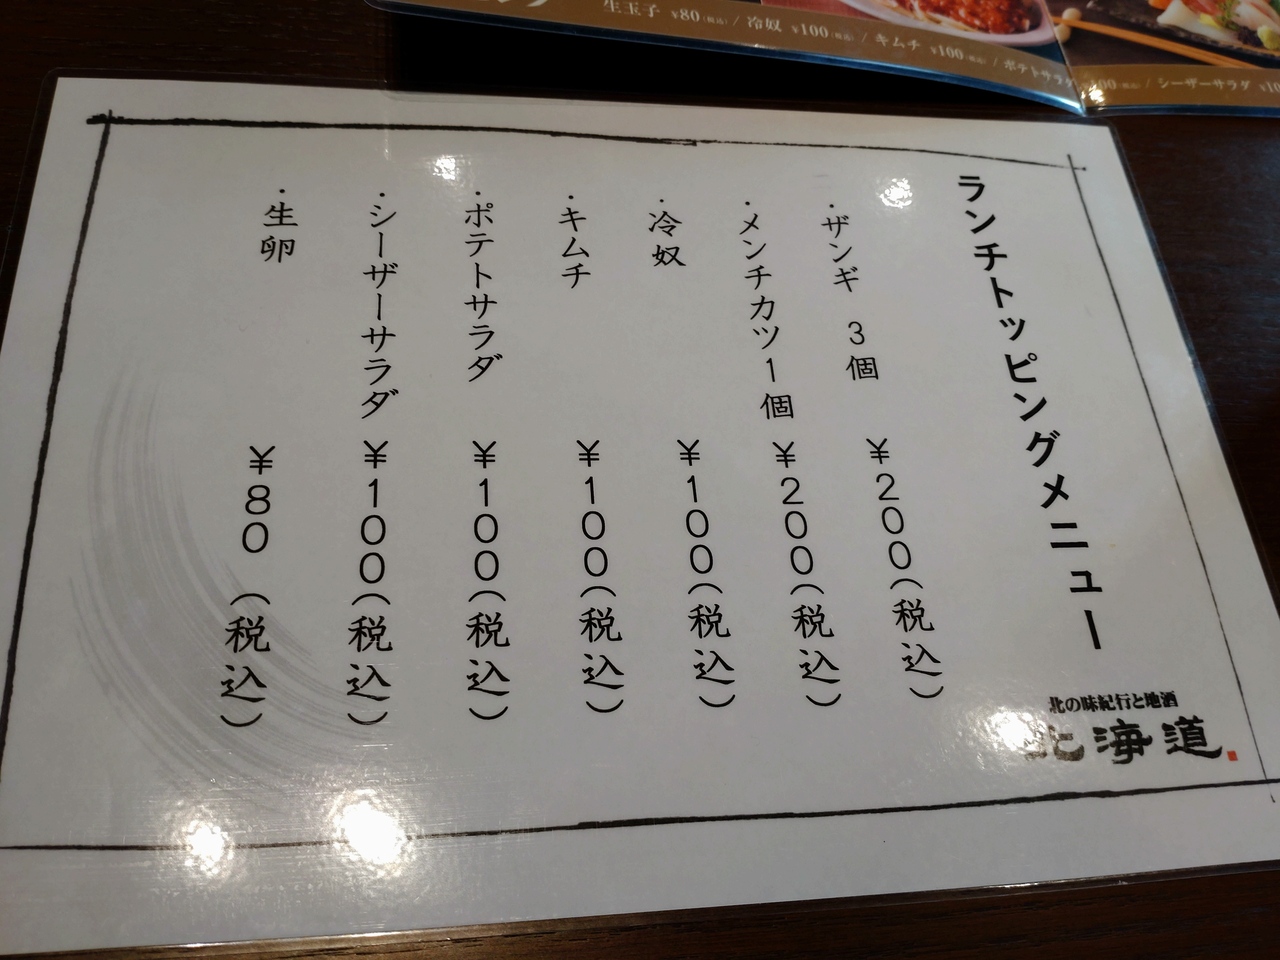 生玉子 ¥80(税込) / 冷奴 ¥100(税込) / キムチ ¥100(税込) / ポテトサラダ
00(税込) / シーザーサラダ ¥10
ランチトッピングメニュー
・ザンギ 3個 ¥200(税込)
・メンチカツ1個 ¥200(税込)
・冷奴 ¥100(税込)
・キムチ ¥100(税込)
・ポテトサラダ ¥100(税込)
・シーザーサラダ ¥100(税込)
・生卵 ¥80(税込)
北の味紀行と地酒
北海道